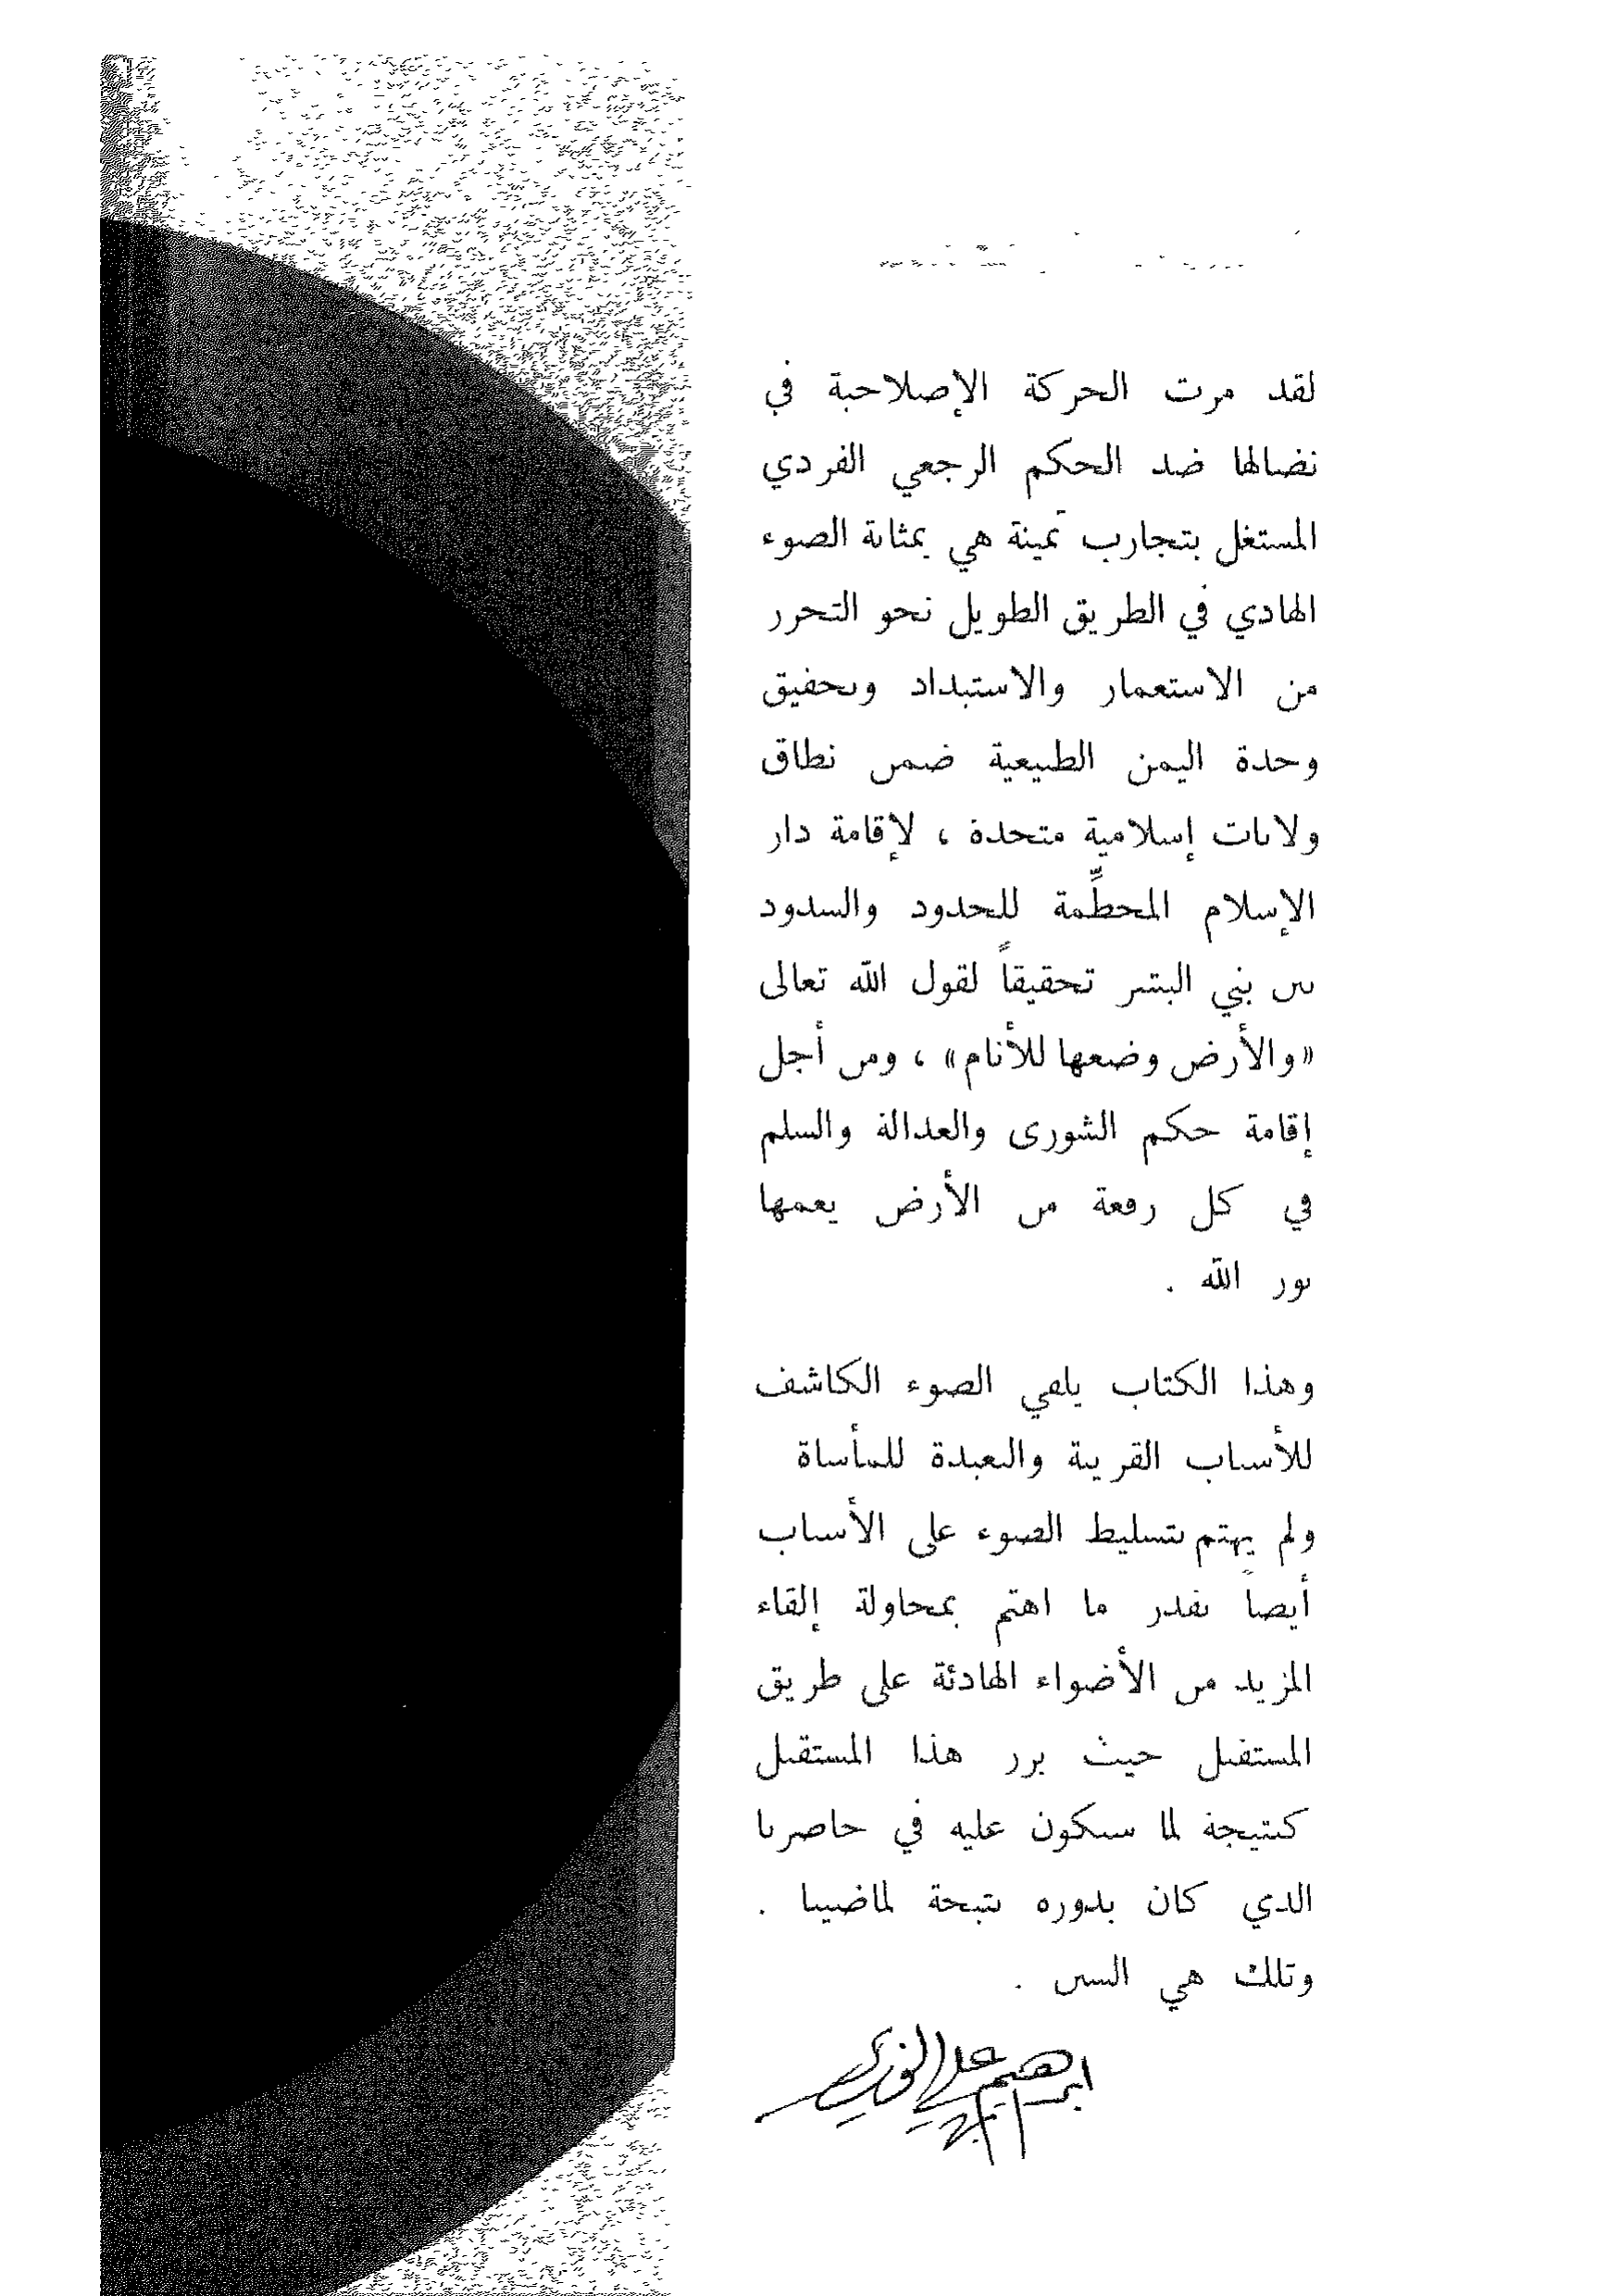 لقد مرت الحركة الإصلاحية في
نضالها ضد الحكم الرجعي الفردي
المستغل بتجارب ثمينة هي بمثابة الضوء
الهادي في الطريق الطويل نحو التحرر
من الاستعمار والاستبداد وتحقيق
وحدة اليمن الطبيعية ضمن نطاق
ولايات إسلامية متحدة ، لإقامة دار
الإسلام المحطِّمة للحدود والسدود
بين بني البشر تحقيقاً لقول الله تعالى
«والأرض وضعها للأنام» ، ومن أجل
إقامة حكم الشورى والعدالة والسلم
في كل رقعة من الأرض يعمها
نور الله .
وهذا الكتاب يلقي الضوء الكاشف
للأسباب القريبة والبعيدة للمأساة
ولم يهتم بتسليط الضوء على الأسباب
أيضاً بقدر ما اهتم بمحاولة إلقاء
المزيد من الأضواء الهادئة على طريق
المستقبل حيث برز هذا المستقبل
كنتيجة لما سنكون عليه في حاضرنا
الذي كان بدوره نتيجة لماضينا .
وتلك هي السنن .
ابراهيم علي الوزير